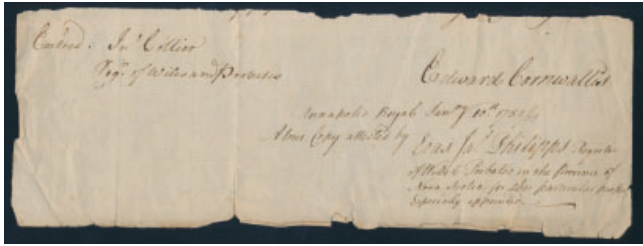 Entred. Jnº Collier
Regr. of Wills and Probates
Edward Cornwallis
Annapolis Royal Janry 10th
A true Copy attested by Eras Jas Philipps Register
of Wills & Probates in the Province of
Nova Scotia for this particular
Especially appointed